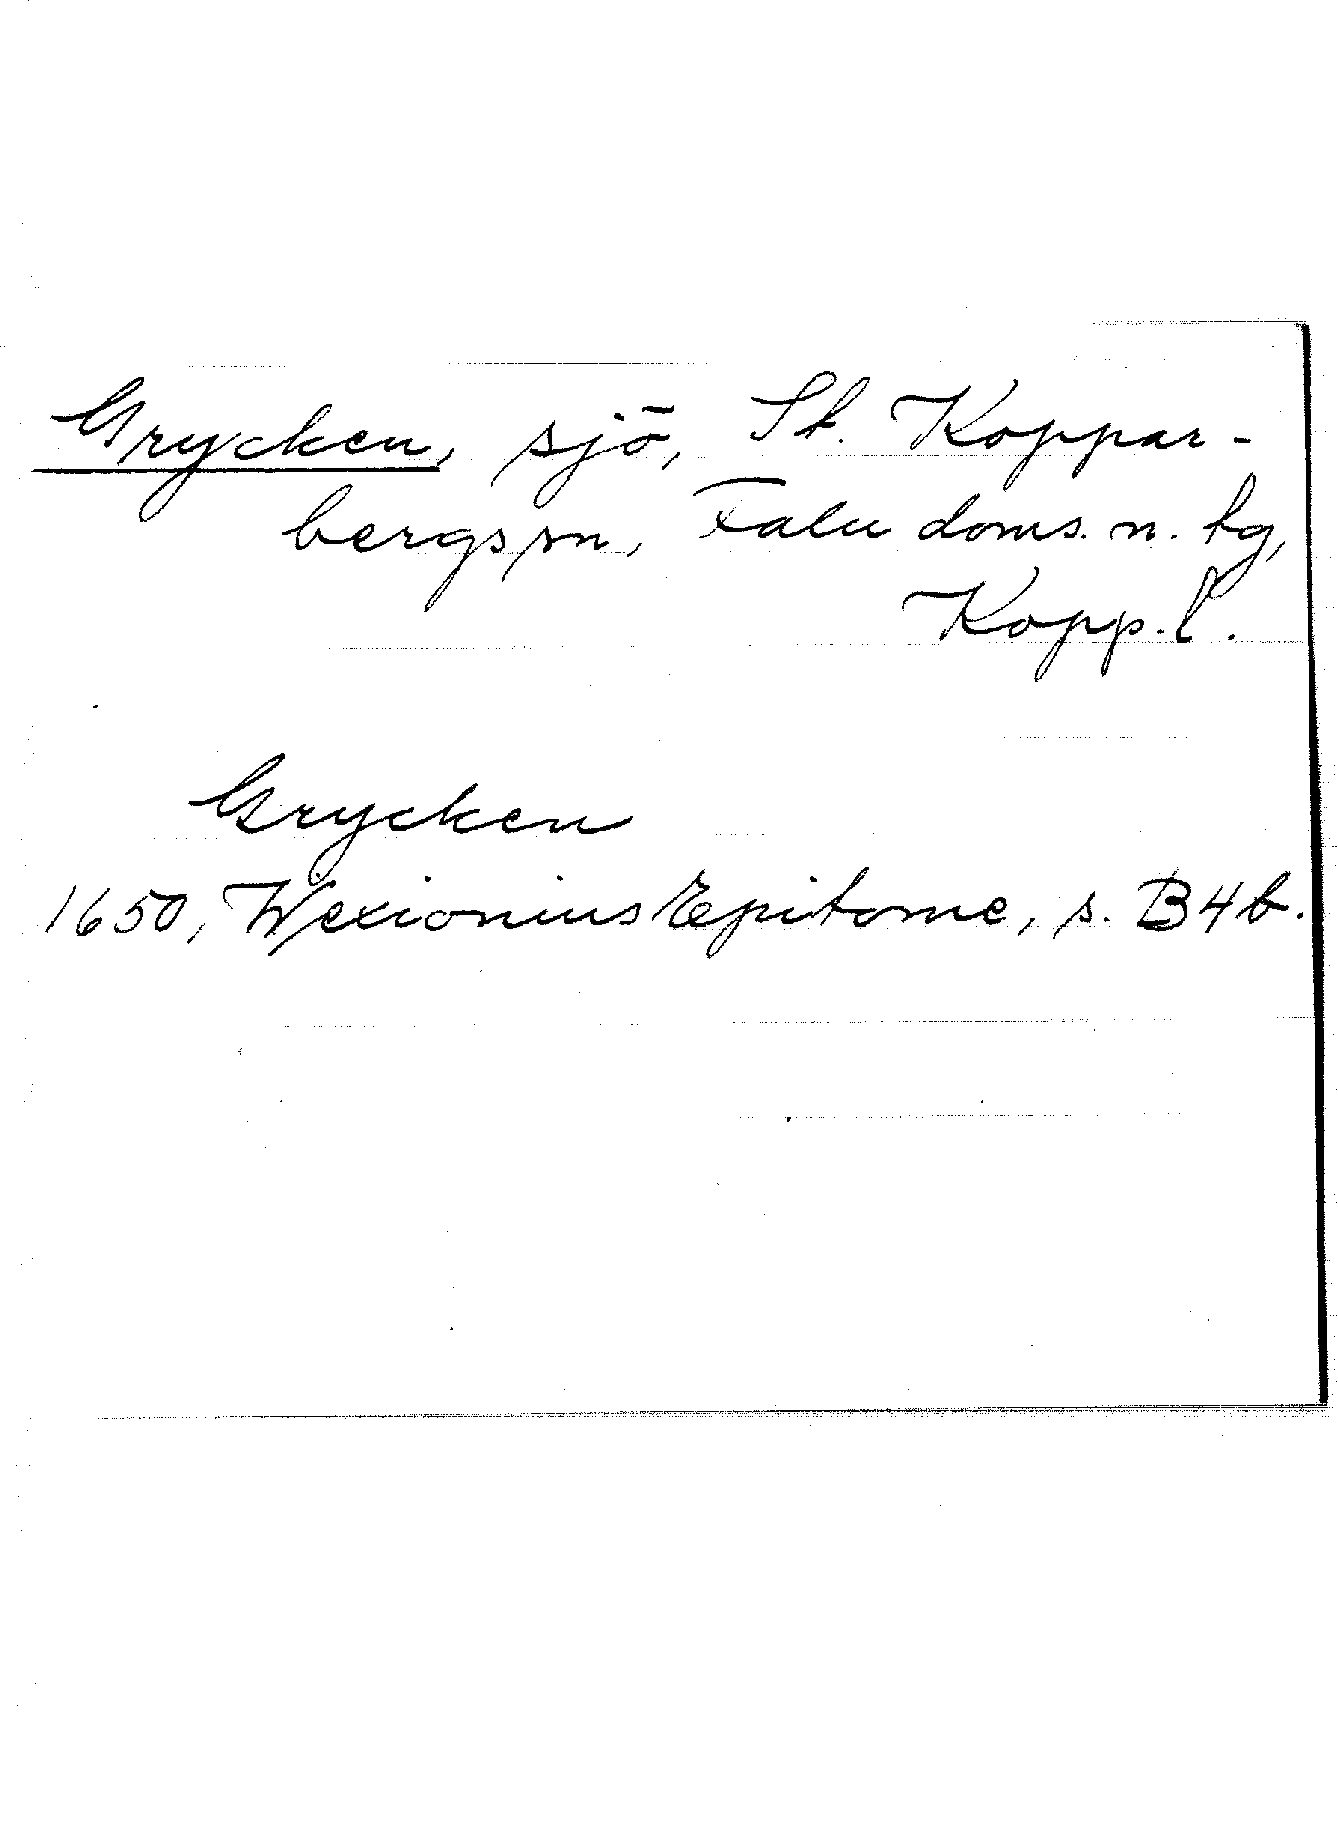 Grycken, sjö, St. Koppar-
bergs sn, Falu doms. n. tg,
Kopp. l.
Grycken
1650, Wexionius Epitome, s. B4b.